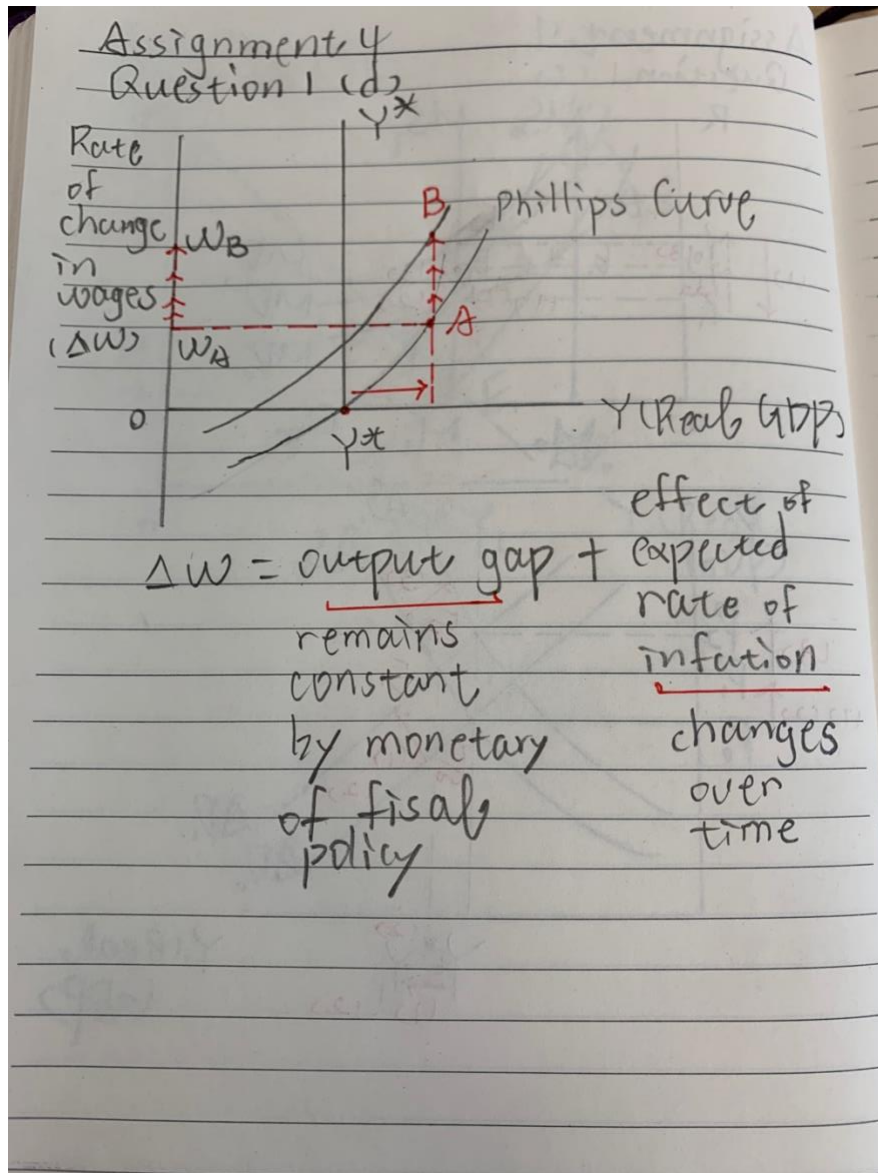 Assignment 4
Question 1 (d)
Y*
Rate
of
change
in
wages
(ΔW)
WB
WA
B
Phillips Curve
A
0
Y*
Y(Real GDP)
ΔW = output gap + effect of expected rate of infation
remains
constant
by monetary
of fisal
policy
changes
over
time